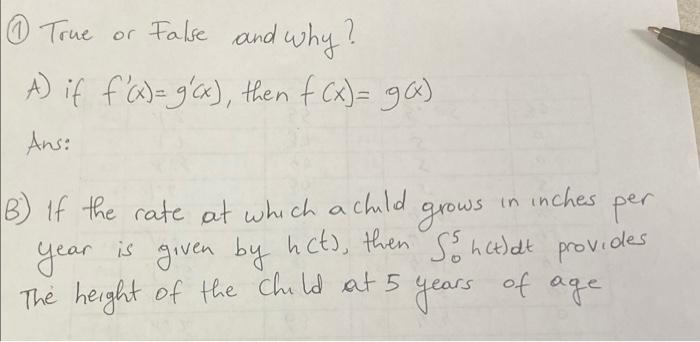 ① True or False and why?
A) if f'(x)=g'(x), then f(x)= g(x)
Ans:
B) If the rate at which a child grows in inches per
year is given by h(t), then ∫₀⁵ h(t)dt provides
The height of the child at 5 years of age